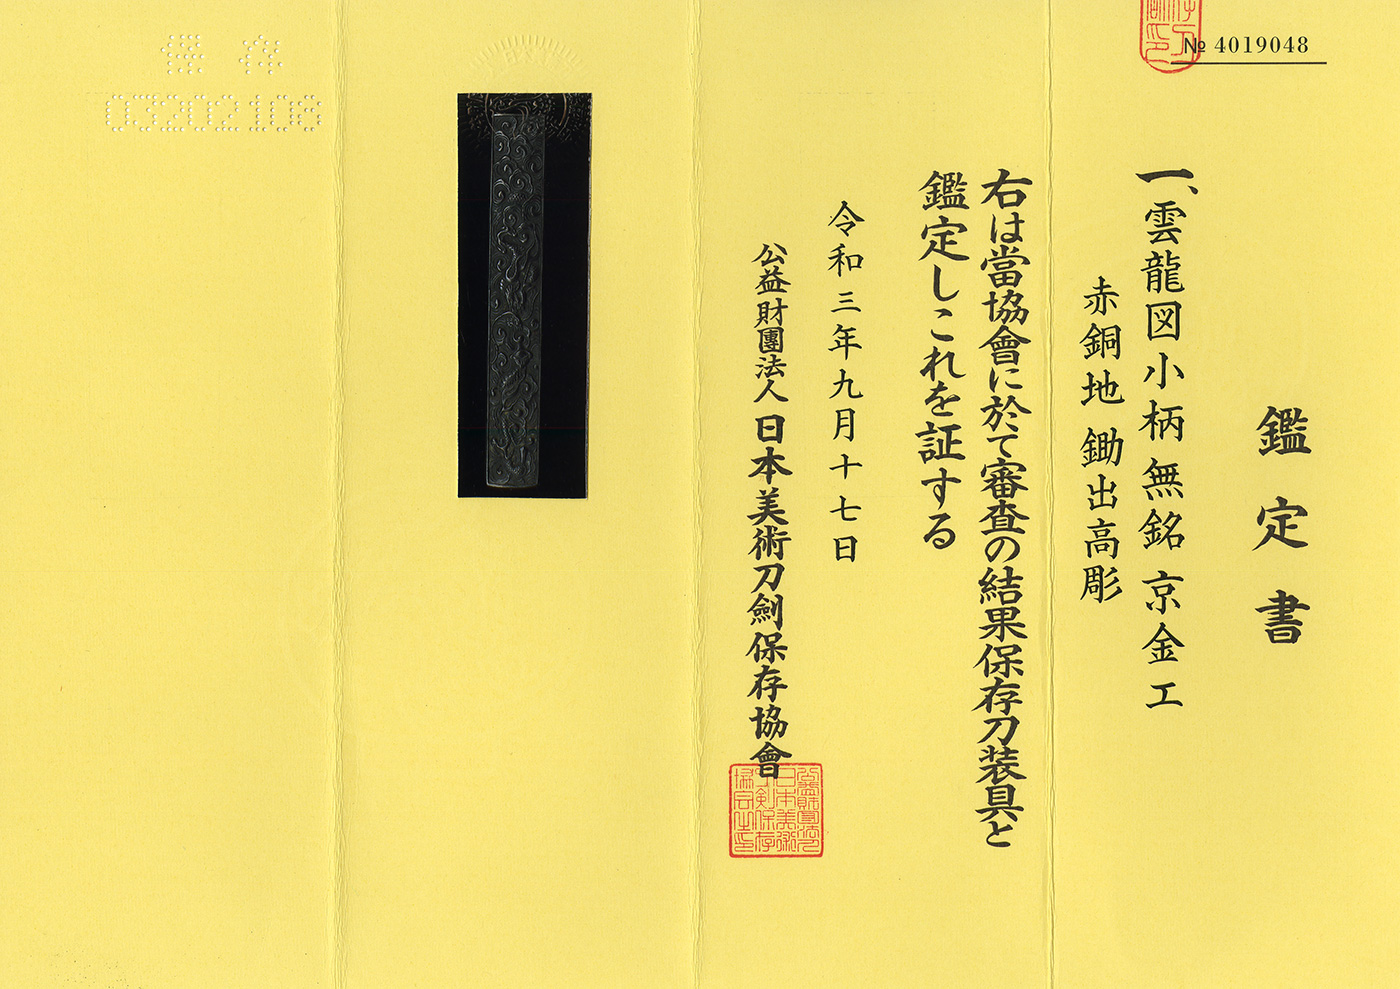 № 4019048
鑑定書
一、雲龍図小柄 無銘 京金工
赤銅地 鋤出高彫
右は當協會に於て審査の結果保存刀装具と
鑑定しこれを証する
令和三年九月十七日
公益財團法人 日本美術刀劍保存協會
保存
03202108